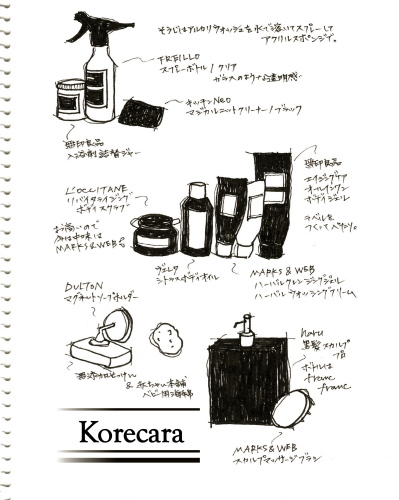 そうじはアルカリウォッシュを水で溶いてスプレーして
アクリルスポンジで。
FREILLO
スプレーボトル / クリア
ガラスのような透明感
キッチンNeo
マジカルニットクリーナー / ブラック
無印良品
入浴剤詰替ジャー
L'OCCITANE
リバイタライジング
ボディスクラブ
お高いので
今は中味は
MARKS&WEB。
無印良品
エイジングケア
オールインワン
ボディジェル
ラベルを
つくってペタリ。
ヴェレダ
シトラスボディオイル
MARKS & WEB
ハーバルクレンジングジェル
ハーバルウォッシングクリーム
DULTON
マグネットソープホルダー
無添加せっけん
& 赤ちゃん本舗
ベビー用海綿
haru
黒髪スカルプ
プロ
ボトルは
franc
franc
MARKS & WEB
スカルプマッサージブラシ
Korecara